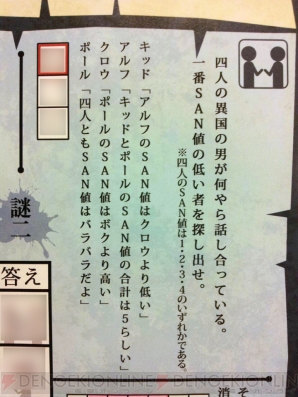 四人の異国の男が何やら話し合っている。
一番SAN値の低い者を探し出せ。
※四人のSAN値は1・2・3・4のいずれかである。
キッド「アルフのSAN値はクロウより低い」
アルフ「キッドとポールのSAN値の合計は5らしい」
クロウ「ポールのSAN値はボクより高い」
ポール「四人ともSAN値はバラバラだよ」
謎二
答え
そ
消
DENGEKIONLINE
DENGEKIONLINE